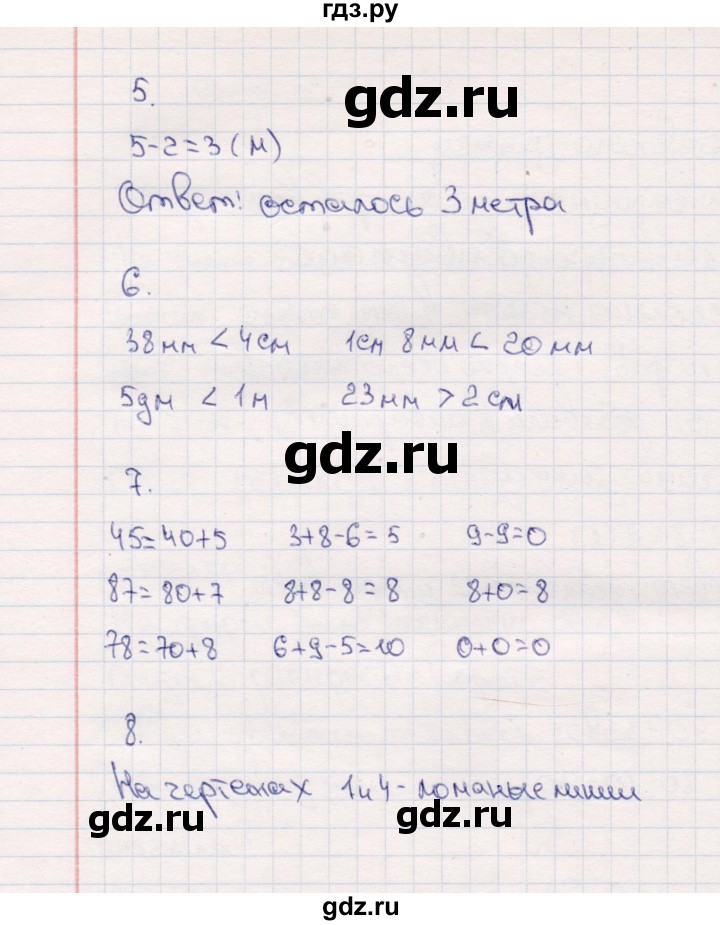 гдз.ру
5.
gdz.ru
5-2=3 (м)
Ответ: осталось 3 метра
6.
38мм < 4см 1см 8мм < 20мм
5дм < 1м 23мм > 2см
gdz.ru
7.
45=40+5 3+8-6=5 9-9=0
87=80+7 8+8-8=8 8+0=8
78=70+8 6+9-5=10 0+0=0
8.
На чертежах 1и4-ломаные линии
gdz.ru gdz.ru
gdz.ru